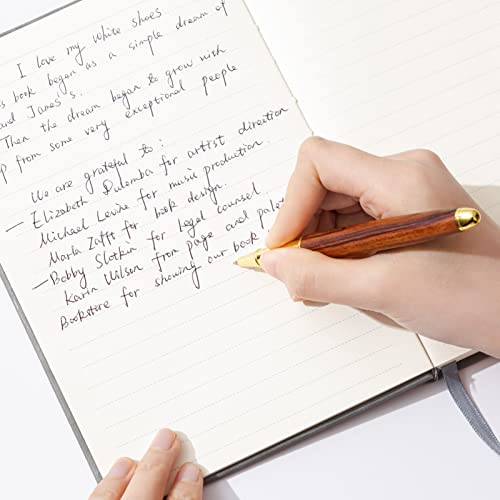 I love my white shoes
s book began as a simple dream of
ard James's.
Then the dream began to grow with
p from some very exceptional people
We are grateful to:
— Elizabeth Dulemba for artist direction
Michael Levine for music production.
Marla Zaffs for book design.
— Bobby Slotkin for legal counsel
Karin Wilson from page and pale
Bookstore for showing our book